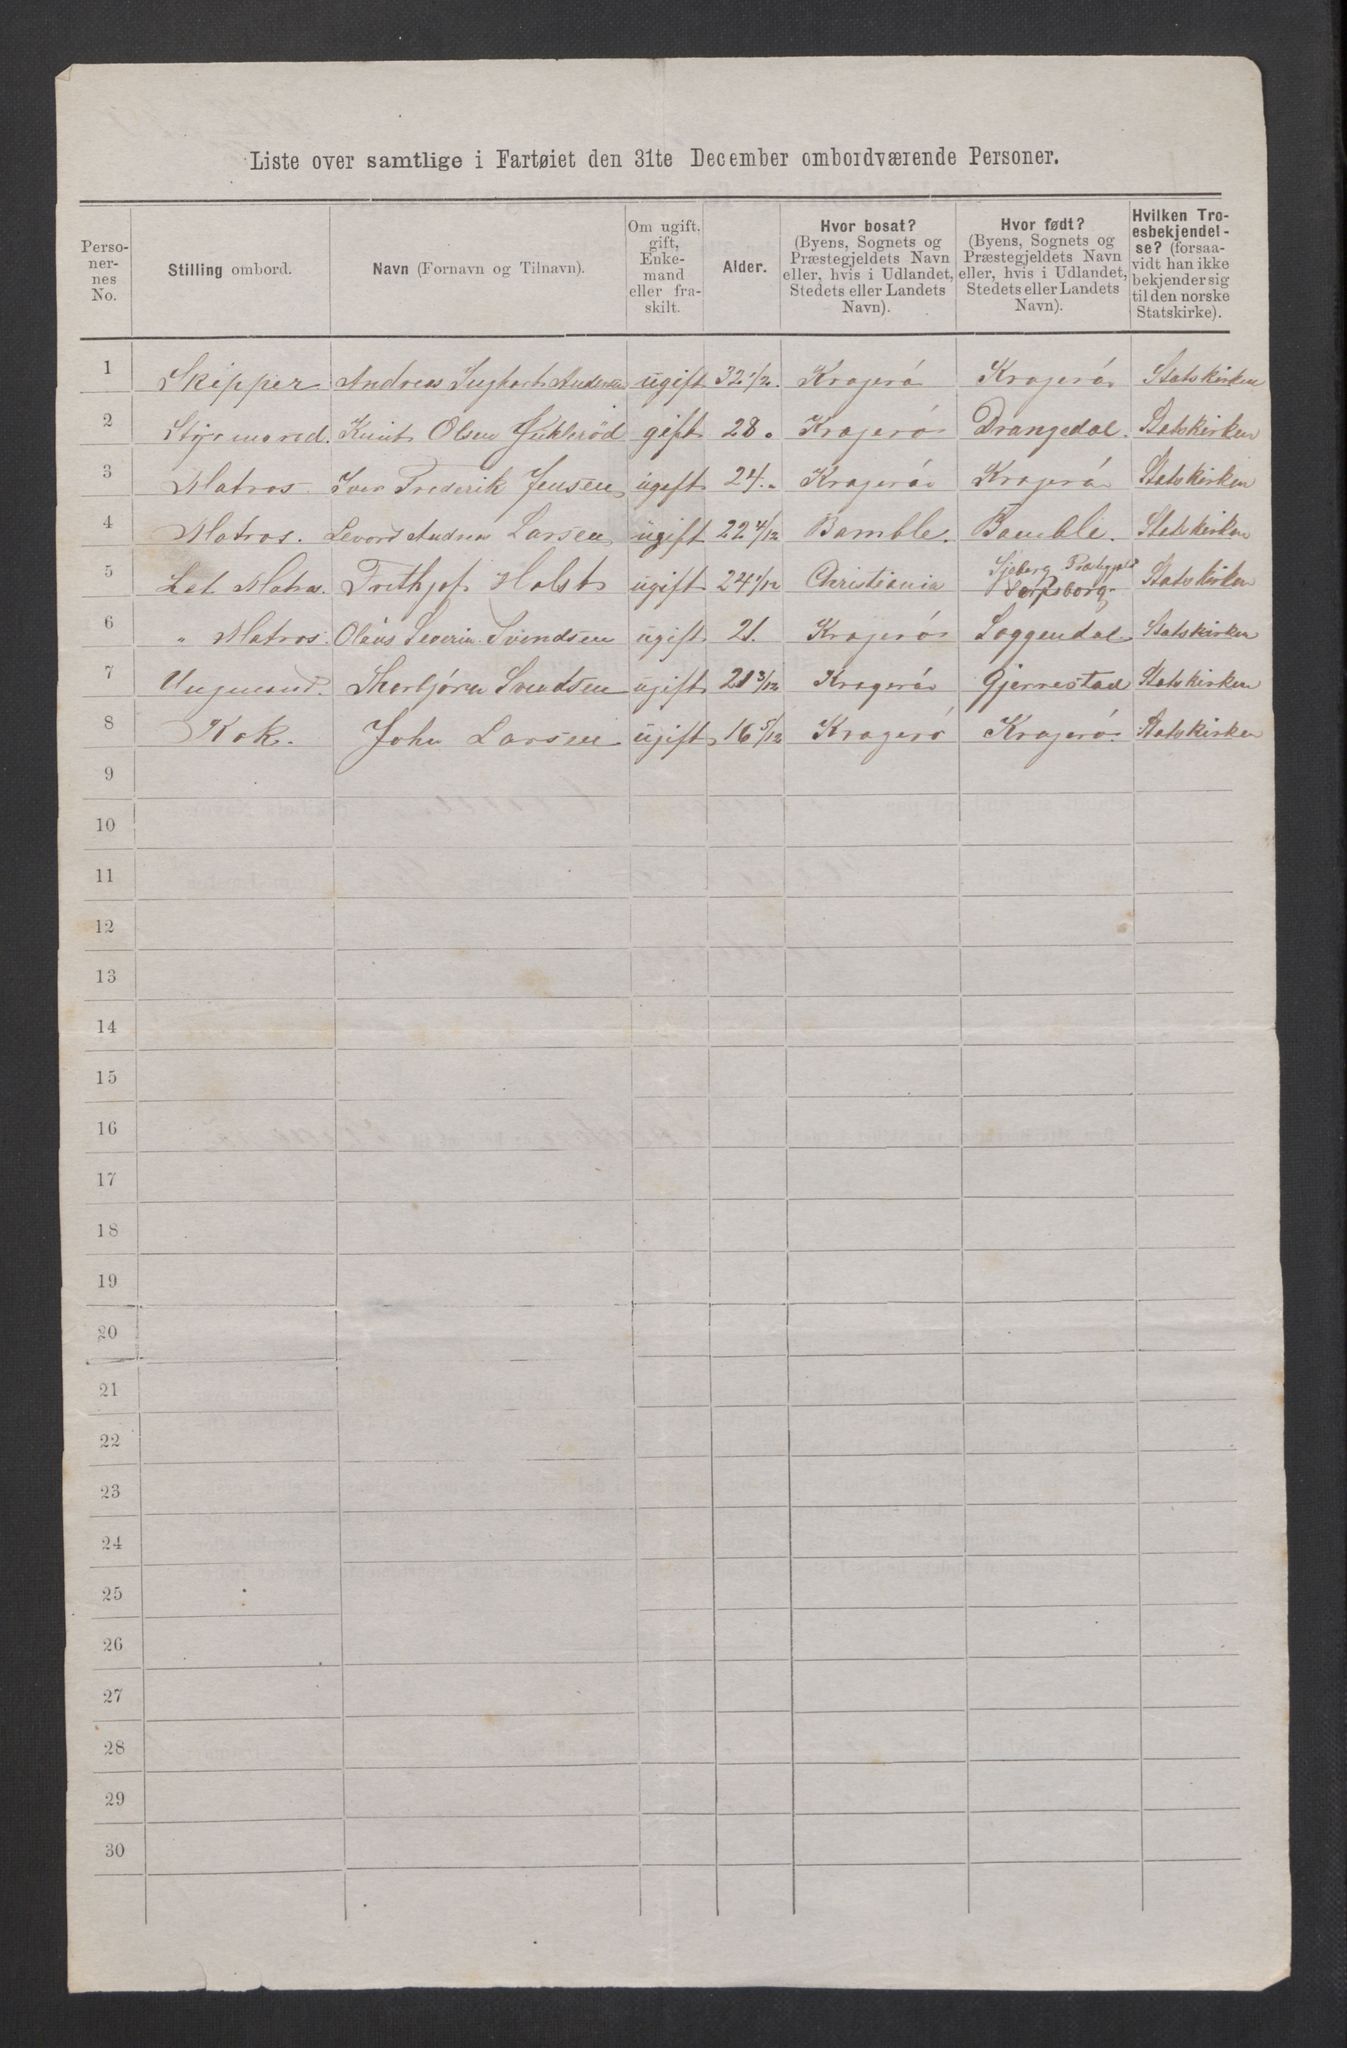 Liste over samtlige i Fartøiet den 31te December ombordværende Personer.
Perso-
ner-
nes
No.
Stilling ombord.
Navn (Fornavn og Tilnavn).
Om ugift,
gift,
Enke-
mand
eller fra-
skilt.
Alder.
Hvor bosat?
(Byens, Sognets og
Præstegjeldets Navn
eller, hvis i Udlandet,
Stedets eller Landets
Navn).
Hvor født?
(Byens, Sognets og
Præstegjeldets Navn
eller, hvis i Udlandet,
Stedets eller Landets
Navn).
Hvilken Tro-
esbekjendel-
se? (forsaa-
vidt han ikke
bekjender sig
til den norske
Statskirke).
1 Skipper Andreas Andersen ugift 32 1/2 Kragerö Kragerö Statskirken
2 Styrmand. Knut Olsen gift 28 Kragerö Drangedal. Statskirken
3 Matros. Iver Frederik Jensen ugift 24 Kragerö Kragerö Statskirken
4 Matros. Andrea Larsen ugift 22 4/12 Bamble. Bamble. Statskirken
5 Let Matros. Frithjof Holst ugift 24 1/12 Christiania Sarpsborg Statskirken
6 " Matros. Olaus Severin Svendsen ugift 21. Kragerö Soggendal Statskirken
7 Ungmand. Thorbjörn Svendsen ugift 21 3/12 Kragerö Gjerrestad Statskirken
8 Kok. John Larsen ugift 16 5/12 Kragerö Kragerö. Statskirken
9
10
11
12
13
14
15
16
17
18
19
20
21
22
23
24
25
26
27
28
29
30